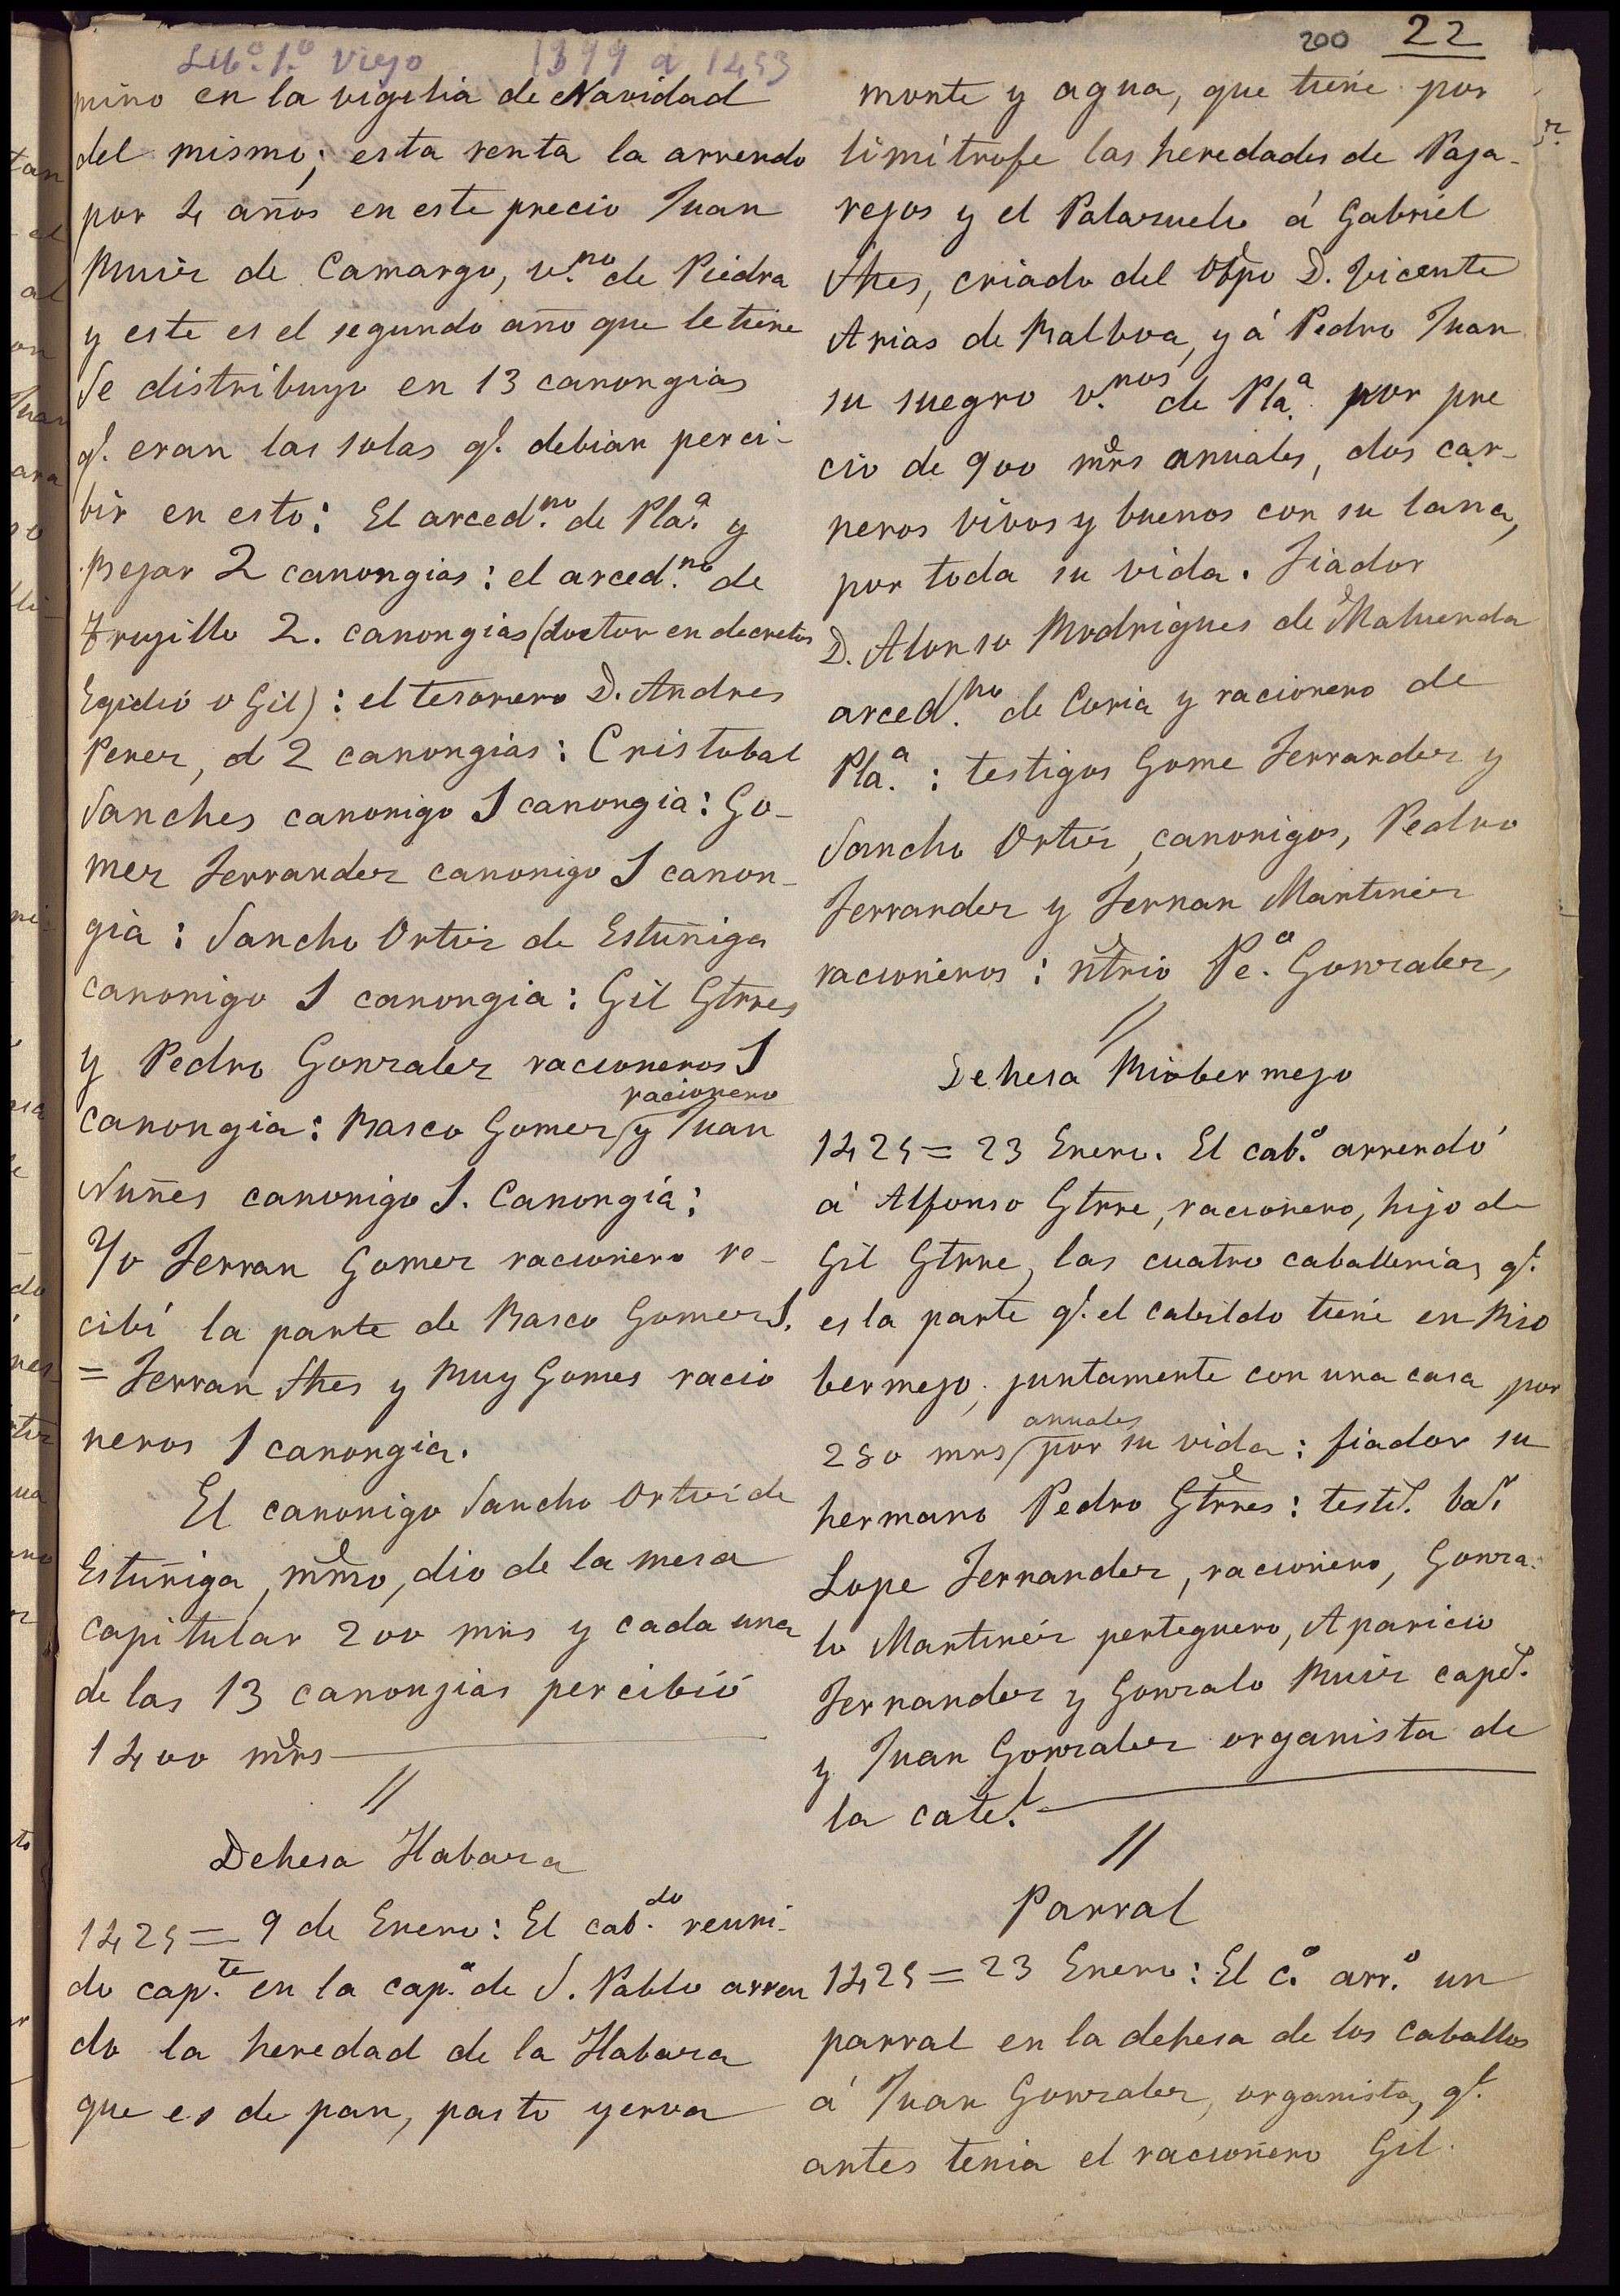 Lib.º 1.º Viejo 1399 a 1453
200 22
mino en la vigilia de Navidad
del mismo; esta renta la arrendo
por 4 años en este precio Juan
Ruiz de Camargo, v.no de Piedra
y este es el segundo año que le tiene
Se distribuyo en 13 canongias
q.e eran las solas q.e debian perci-
bir en esto: El arced.no de Pla.a y
Bejar 2 canongias: el arced.no de
Trugillo 2. canongias (doctor en decretos
Egidio o Gil): el tesorero D. Andres
Perez, d 2 canongias: Cristobal
Sanches canonigo 1 canongia: Go-
mez Ferrandez canonigo 1 canon-
gia: Sancho Ortiz de Estuñiga
canonigo 1 canongia: Gil Gtrres
y Pedro Gonzalez racioneros 1
canongia: Basco Gomez racionero y Juan
Nuñes canonigo 1. Canongia:
Yo Ferran Gomez racionero re-
cibí la parte de Basco Gomez 1.
= Ferran Shes y Ruy Gomes racio
neros 1 canongia.
El canonigo Sancho Ortiz de
Estuñiga, mmo, dio de la mesa
capitular 200 mrs y cada una
de las 13 canongias percibió
1400 mrs
//
Dehesa Habaza
1425 = 9 de Enero: El cab.do reuni-
do cap.te en la cap.a de S. Pablo arren
do la heredad de la Habaza
que es de pan, pasto yerva
monte y agua, que tiene por
limítrofe las heredades de Paja-
rejos y el Palazuelo á Gabriel
Shes, criado del Obpo D. Vicente
Arias de Balboa, y á Pedro Juan
su suegro v.nos de Pla.a por pre
cio de 900 mrs anuales, dos car-
neros vivos y buenos con su lana,
por toda su vida. Fiador
D. Alonso Rodrigues de Maluenda
arced.no de Coria y racionero de
Pla.a: testigos Gome Ferrandez y
Sancho Ortiz, canonigos, Pedro
Ferrandez y Fernan Martinez
racioneros: ntrio Pe.o Gonzalez,
//
Dehesa Riobermejo
1425 = 23 Enero. El cab.o arrendó
á Alfonso Gtrre, racionero, hijo de
Gil Gtrre, las cuatro caballerias q.e
es la parte q.e el cabildo tiene en Rio
bermejo, juntamente con una casa por
250 mrs anuales por su vida: fiador su
hermano Pedro Gtrres: testi.s ba.r
Lope Fernandez, racionero, Gonza-
lo Martinez perteguero, Aparicio
Fernandez y Gonzalo Ruiz cape.s
y Juan Gonzalez organista de
la cate.l
//
Parral
1425 = 23 Enero: El c.o arr.o un
parral en la dehesa de los caballos
á Juan Gonzalez, organista, q.e
antes tenia el racionero Gil